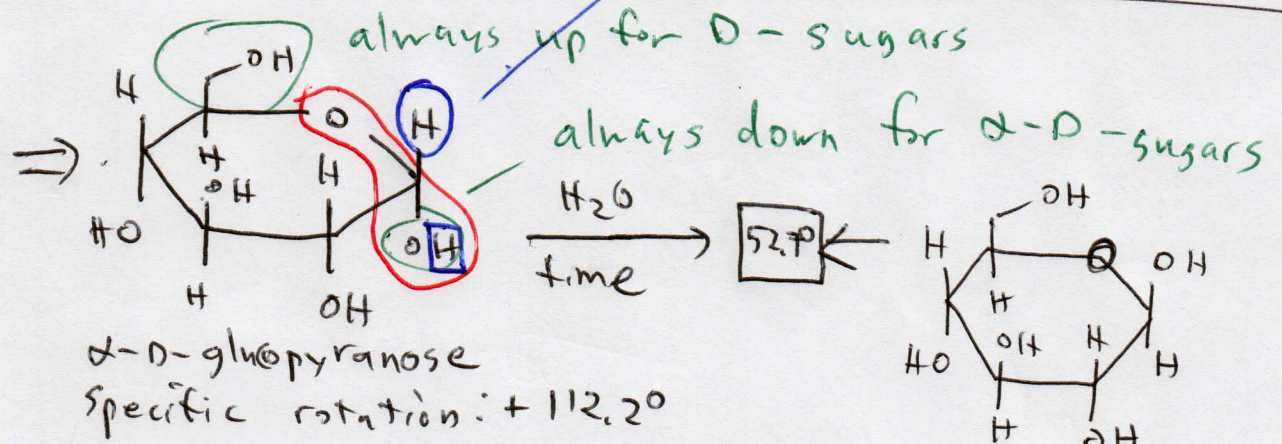 always up for D-sugars
OH
H
O
H
always down for α-D-sugars
H
OH
H
H2O
OH
HO
OH
time
52.7°
H
OH
H
OH
H
OH
H
HO
OH
H
H
α-D-glucopyranose
specific rotation: +112.2°
H
OH